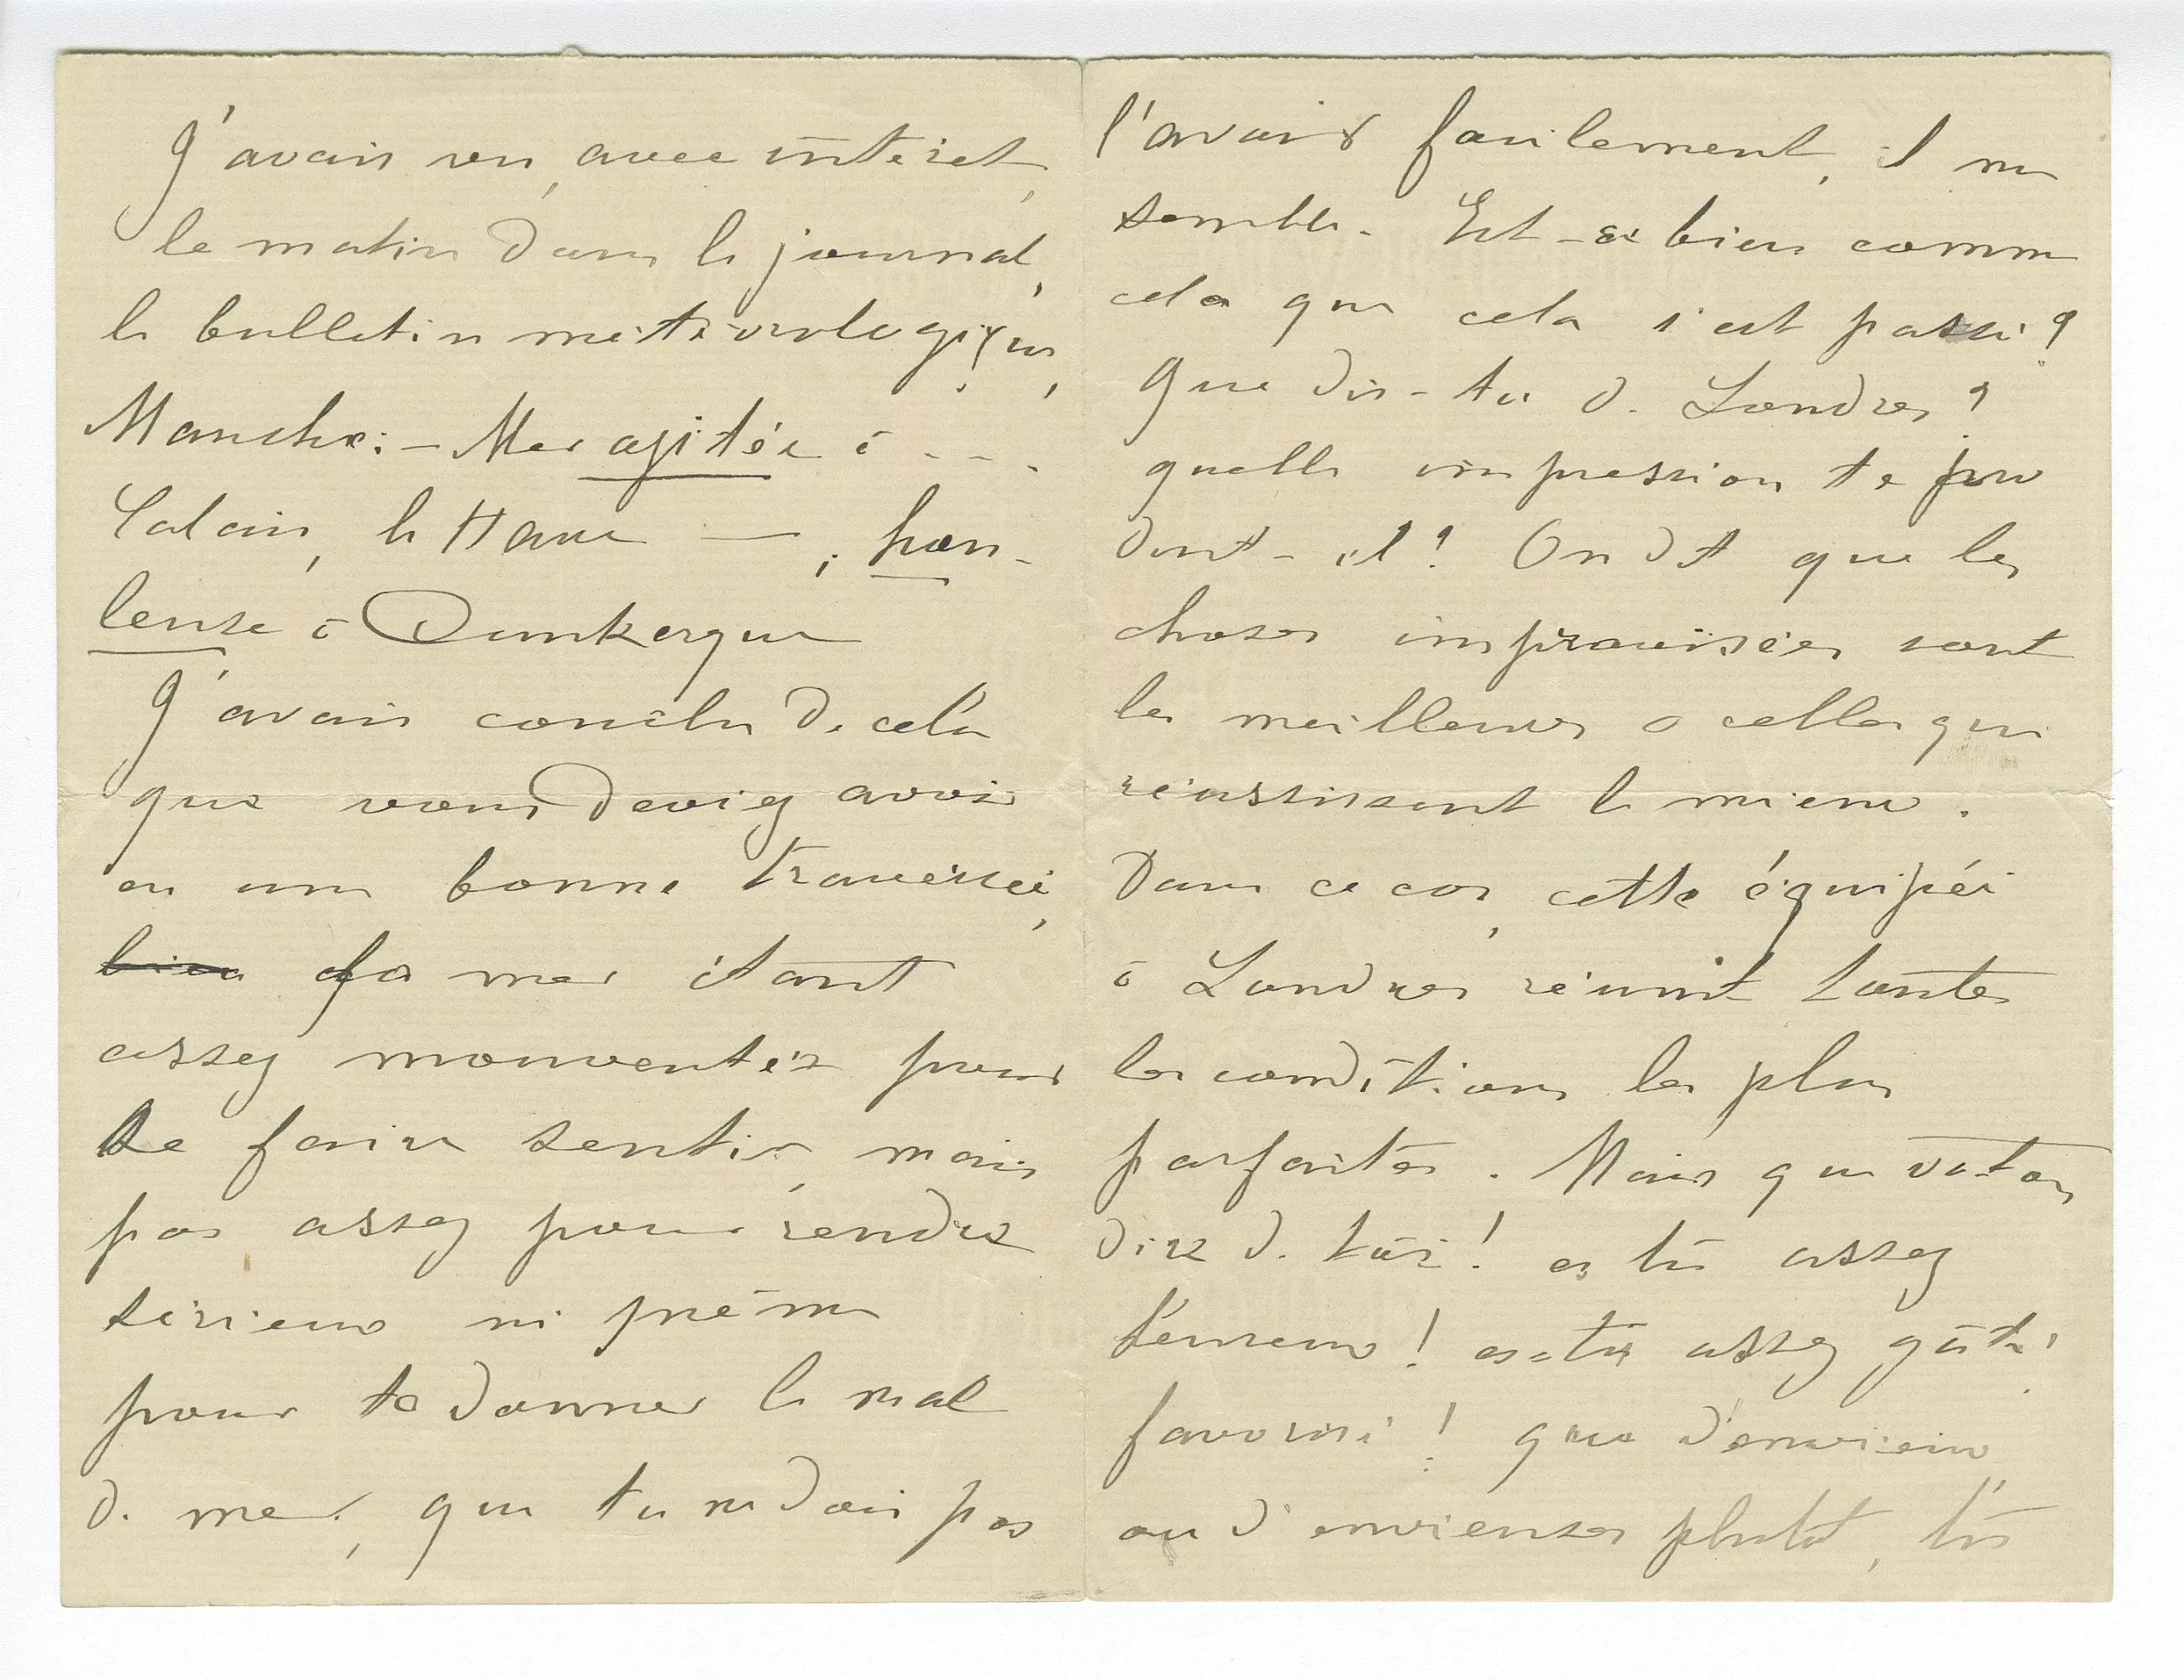 J'avais vu, avec intérêt,
le matin dans le journal,
le bulletin météorologique,
Manche: – Mer agitée à - - -
Calais, le Havre — ; hou-
leuse à Dunkerque
J'avais conclu de cela
que vous deviez avoir
eu une bonne traversée,
bien la mer étant
assez mouventée pour
se faire sentir, mais
pas assez pour rendre
sérieux ni même
pour te donner le mal
de mer, que tu ne dois pas
l'avoir facilement, il me
semble. Est-ce bien comme
cela que cela s'est passé?
Que dis-tu de Londres?
quelle impression te pro
duit-il? On dit que les
choses improvisées sont
les meilleures o celles qui
réussissent le mieux.
Dans ce cas, cette équipée
à Londres réunit toutes
les conditions les plus
parfaites. Mais que va-t-on
dire de toi! es tu assez
heureux! es-tu assez gâté
favorisé! que d'envieux
ou d'envieuses plutôt, tu